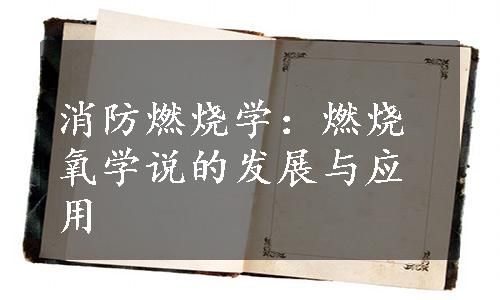 消防燃烧学：燃烧
氧学说的发展与应
用